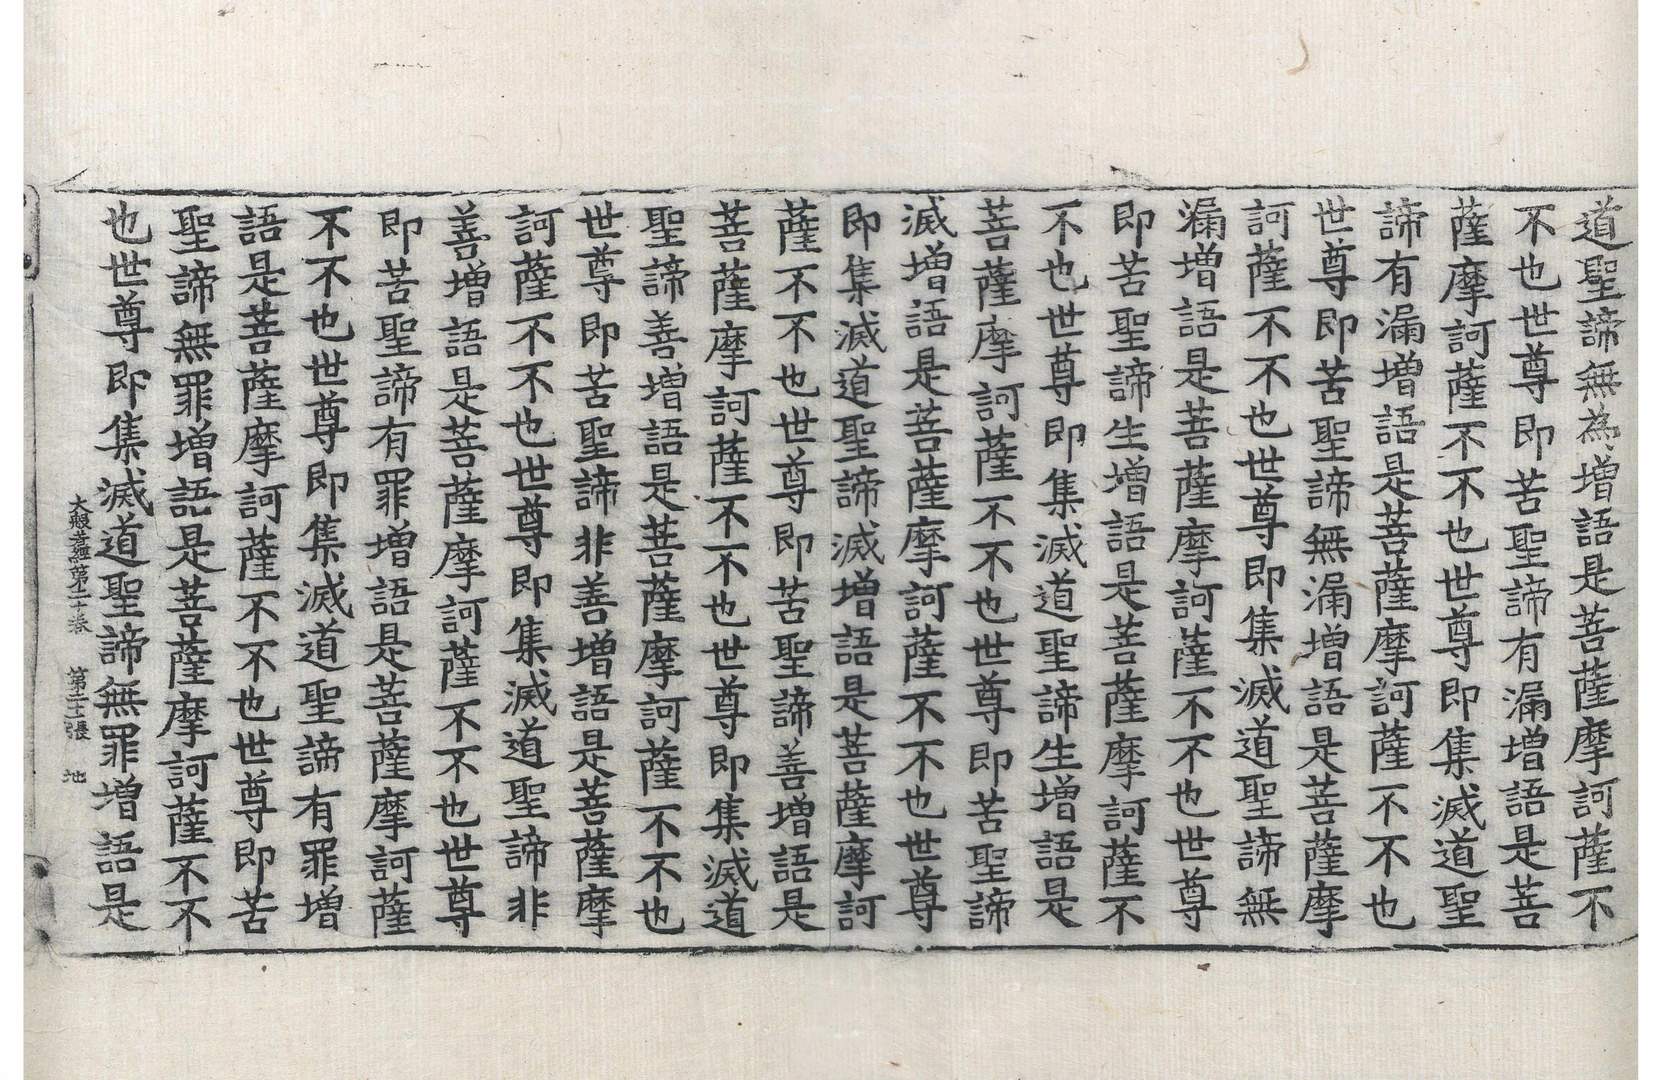 道聖諦無為增語是菩薩摩訶薩不
不也世尊即苦聖諦有漏增語是菩
薩摩訶薩不不也世尊即集滅道聖
諦有漏增語是菩薩摩訶薩不不也
世尊即苦聖諦無漏增語是菩薩摩
訶薩不不也世尊即集滅道聖諦無
漏增語是菩薩摩訶薩不不也世尊
即苦聖諦生增語是菩薩摩訶薩不
不也世尊即集滅道聖諦生增語是
菩薩摩訶薩不不也世尊即苦聖諦
滅增語是菩薩摩訶薩不不也世尊
即集滅道聖諦滅增語是菩薩摩訶
薩不不也世尊即苦聖諦善增語是
菩薩摩訶薩不不也世尊即集滅道
聖諦善增語是菩薩摩訶薩不不也
世尊即苦聖諦非善增語是菩薩摩
訶薩不不也世尊即集滅道聖諦非
善增語是菩薩摩訶薩不不也世尊
即苦聖諦有罪增語是菩薩摩訶薩
不不也世尊即集滅道聖諦有罪增
語是菩薩摩訶薩不不也世尊即苦
聖諦無罪增語是菩薩摩訶薩不不
也世尊即集滅道聖諦無罪增語是
大般若經第二十卷 地